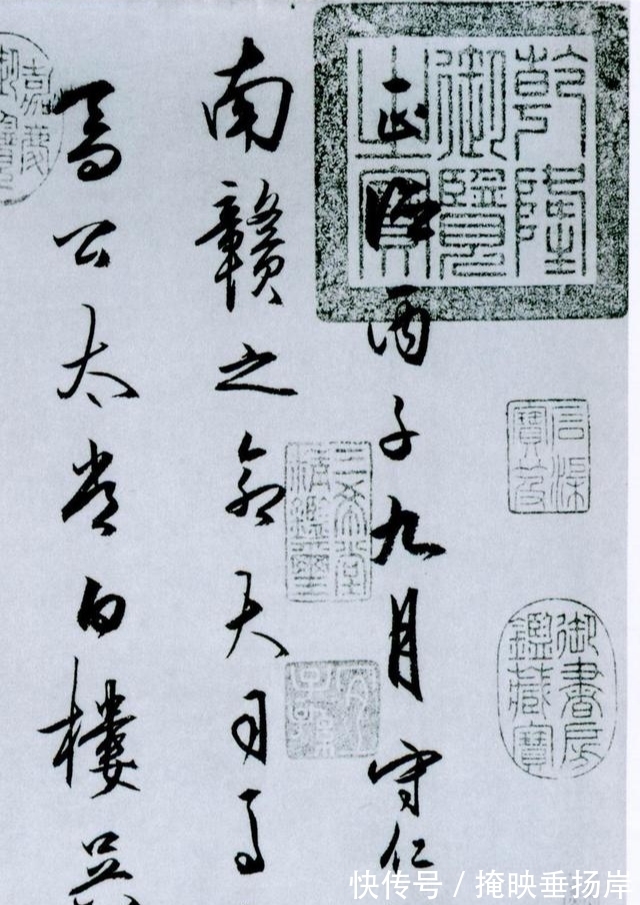 正德丙子九月守仁
南贛之命大司馬
喬公太常白樓吳
乾隆御覽之寶
石渠寶笈
御書房鑑藏寶
三希堂精鑑璽
宜子孫
嘉慶御覽
快传号 / 掩映垂扬岸